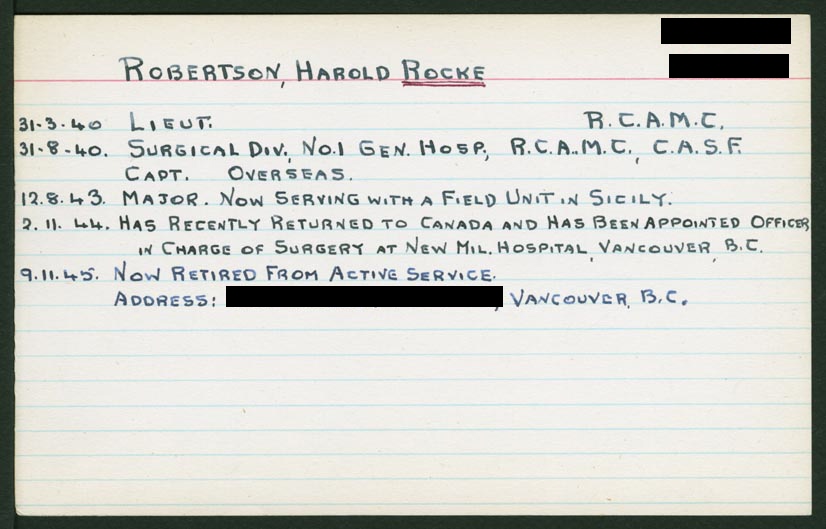 ROBERTSON, HAROLD ROCKE
31-3-40 LIEUT. R.C.A.M.C.
31-8-40. SURGICAL DIV., NO.1 GEN. HOSP., R.C.A.M.C., C.A.S.F.
CAPT. OVERSEAS.
12.8.43. MAJOR. NOW SERVING WITH A FIELD UNIT IN SICILY.
2.11.44. HAS RECENTLY RETURNED TO CANADA AND HAS BEEN APPOINTED OFFICER
IN CHARGE OF SURGERY AT NEW MIL. HOSPITAL, VANCOUVER, B.C.
9.11.45. NOW RETIRED FROM ACTIVE SERVICE.
ADDRESS: , VANCOUVER, B.C.